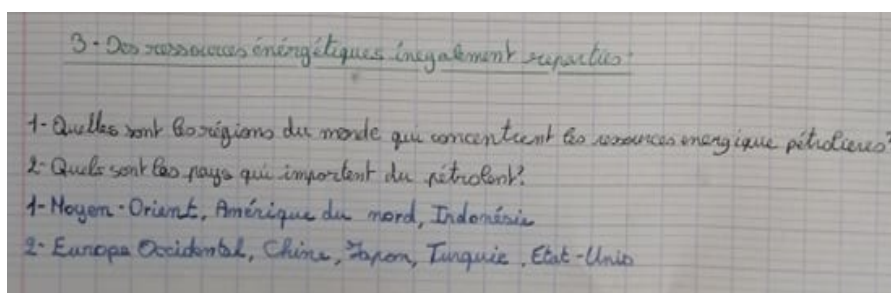 3 - Des ressources énérgétiques inegalement reparties
1- Quelles sont les régions du monde qui concentrent les ressources energique pétrolieres?
2- Quels sont les pays qui importent du pétrolent?
1- Moyen-Orient, Amérique du nord, Indonésie
2- Europe Occidental, Chine, Japon, Turquie, Etat-Unis